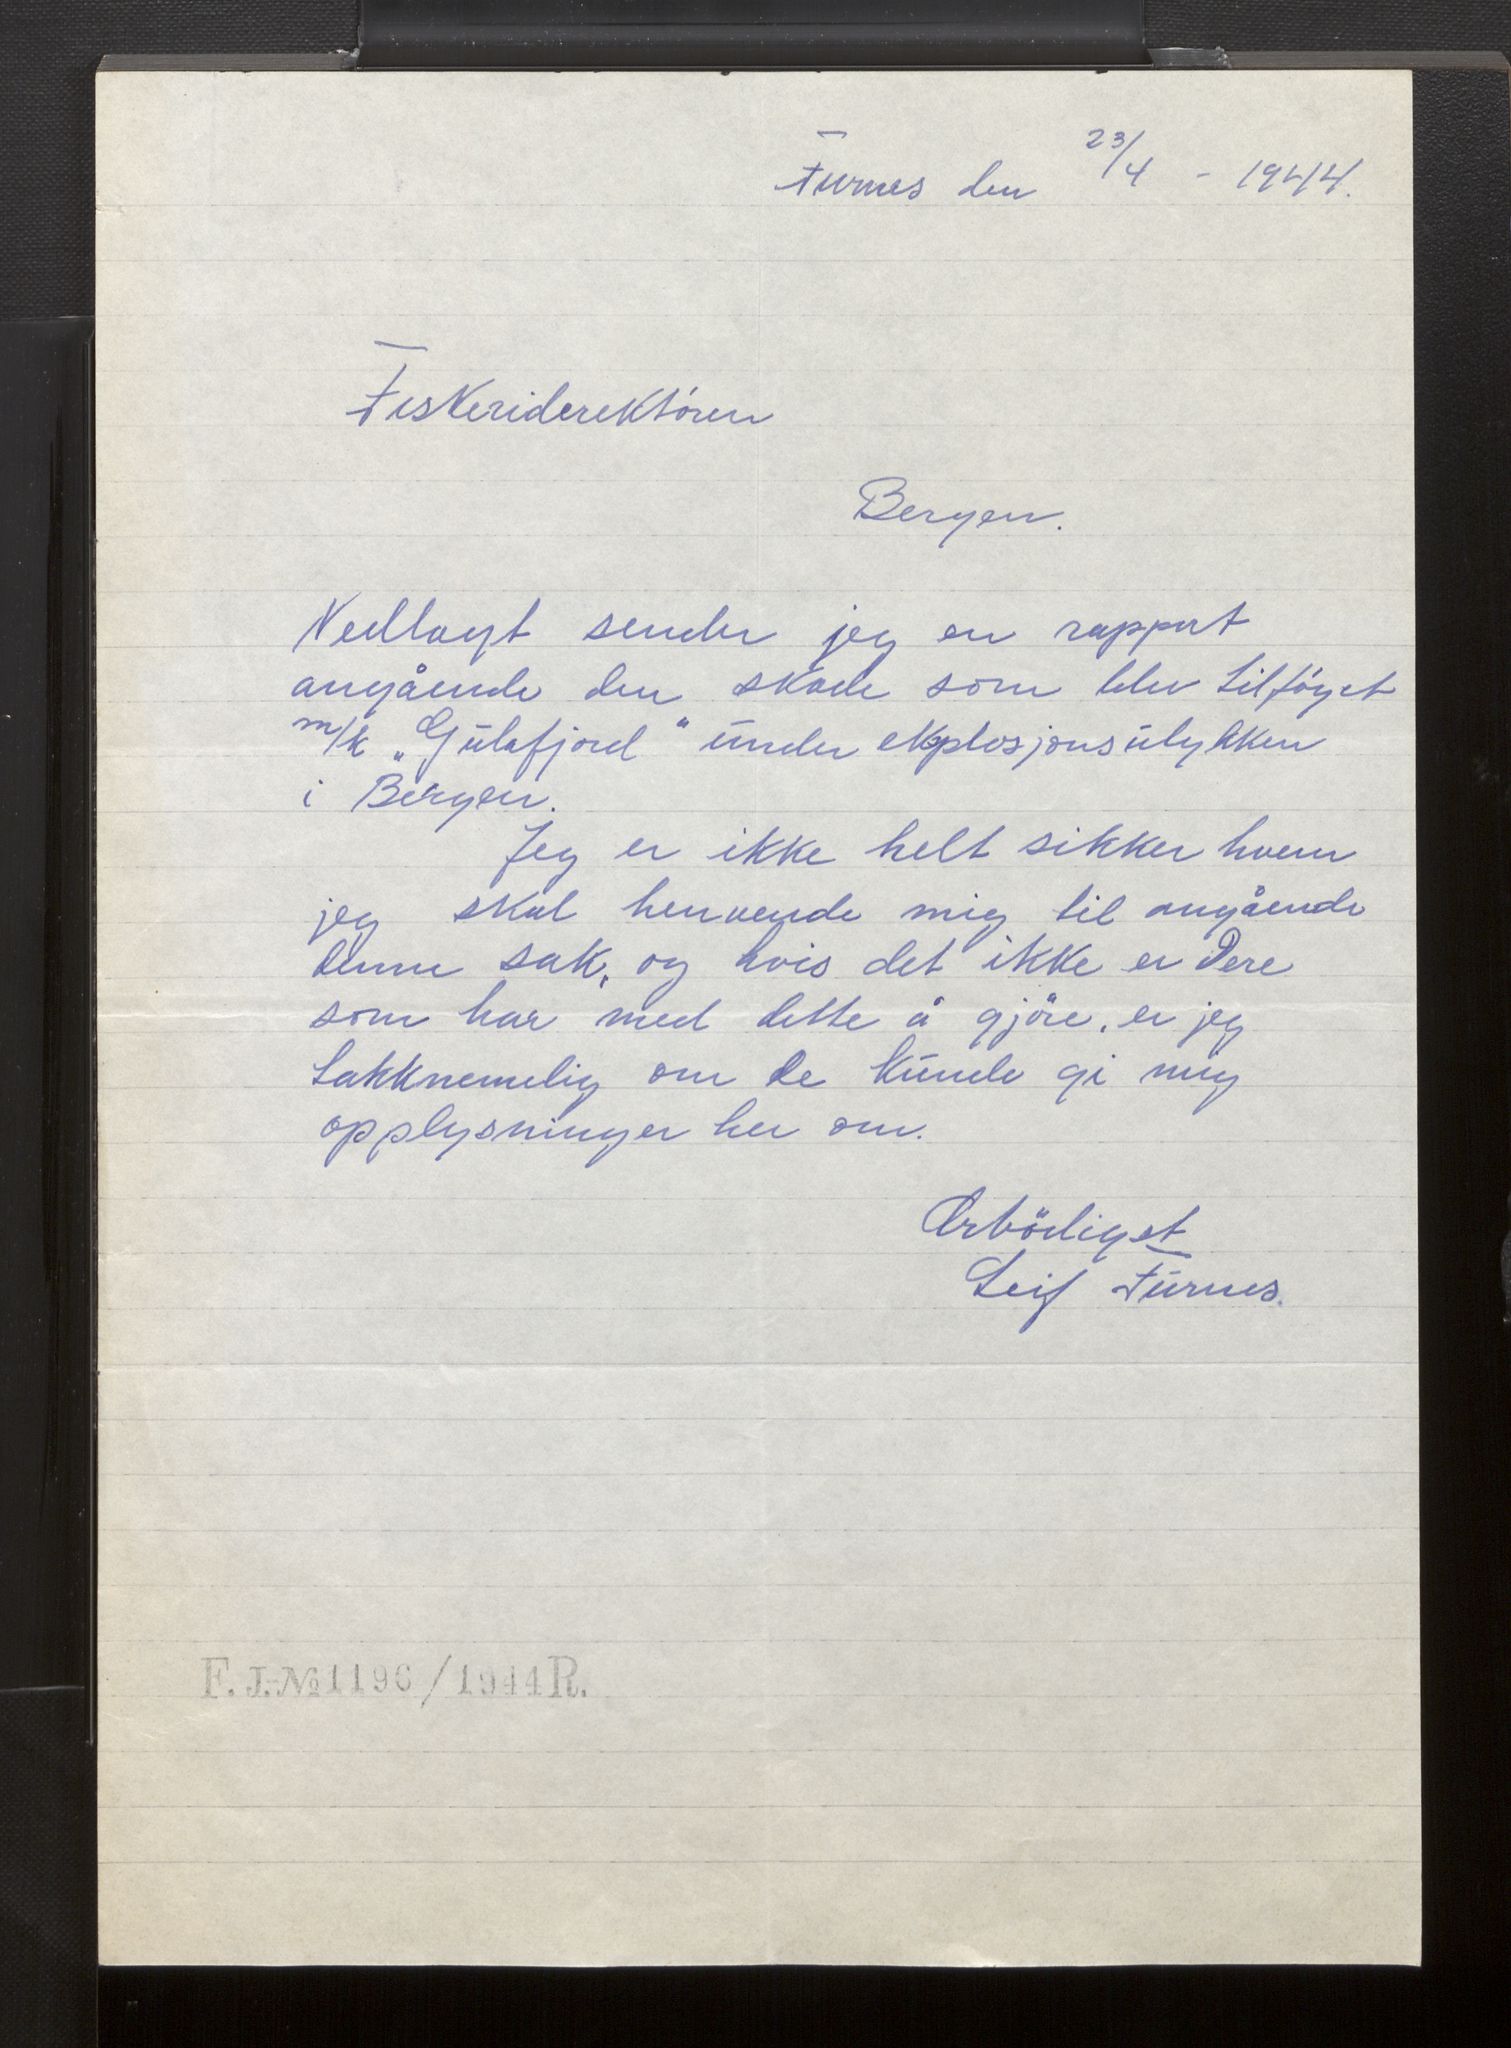 Furnes den 23/4 - 1944.
Fiskeridirektören
Bergen.
Vedlagt sender jeg en rapport
angående den skade som blev tilföyet
m/k „Gulafjord" under eksplosjonsulykken
i Bergen.
Jeg er ikke helt sikker hvem
jeg skal henvende mig til angående
denne sak, og hvis det ikke er Dere
som har med dette å gjöre, er jeg
takknemelig om De kunde gi mig
opplysninger her om.
Ærbödigst
Leif Furnes.
F. J.-№ 1196/1944 R.